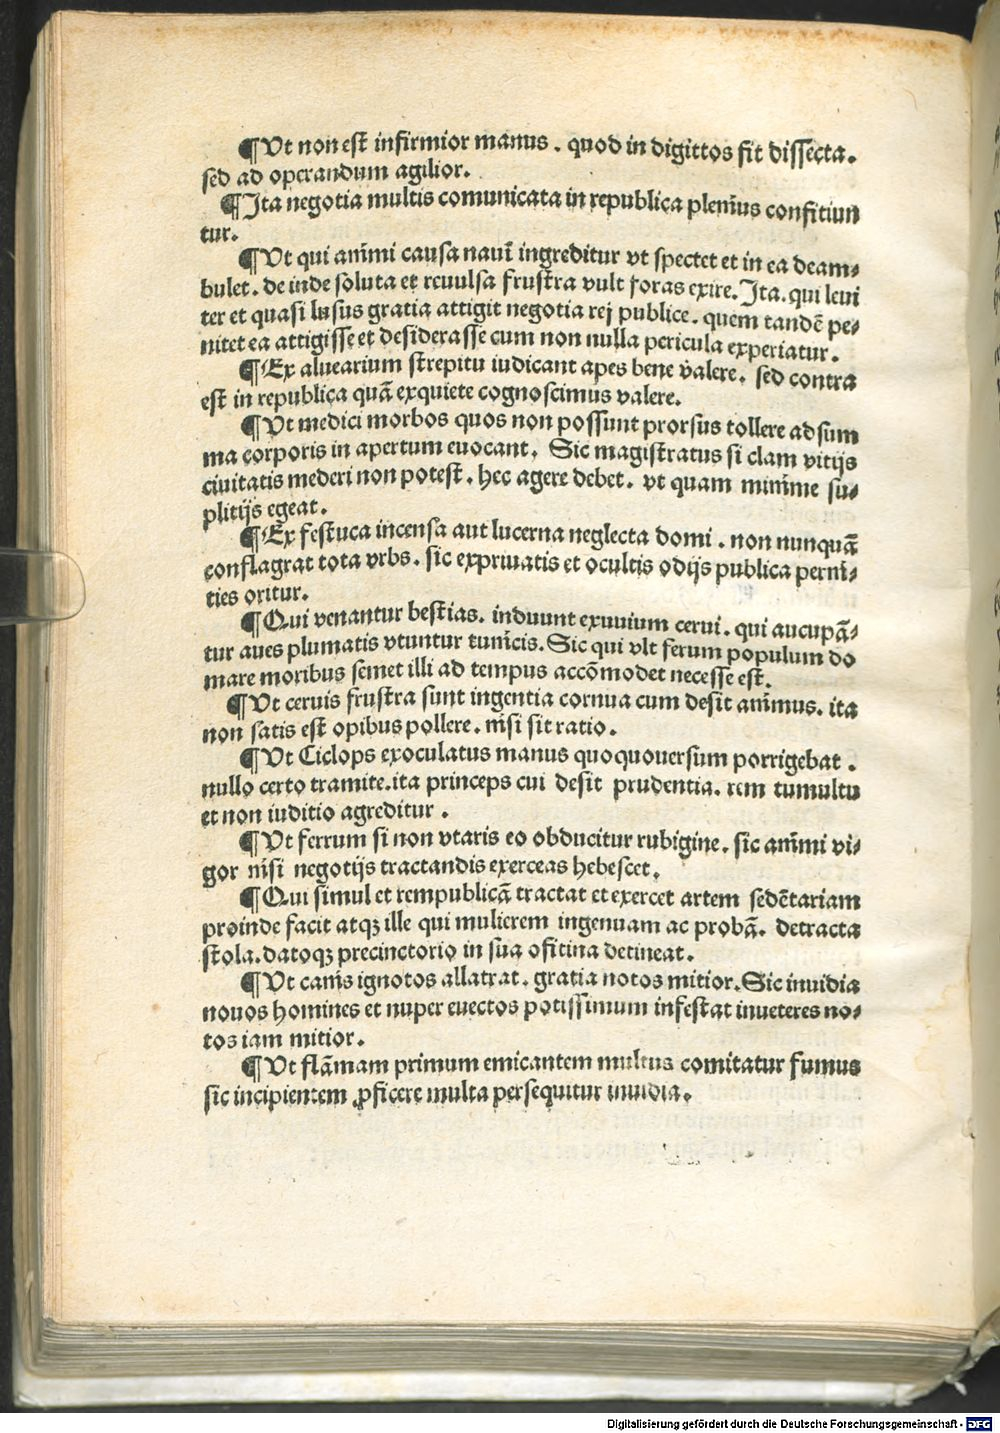 ¶Vt non est infirmior manus . quod in digittos fit dissecta.
sed ad operandum agilior.
¶Ita negotia multis comunicata in republica plenius confitiun
tur.
¶Vt qui animi causa nauī ingreditur vt spectet et in ea deam⸗
bulet . de inde soluta et reuulsa frustra vult foras exire. Ita . qui leui
ter et quasi lusus gratia attigit negotia rej publice . quem tandē pe⸗
nitet ea attigisse et desiderasse cum non nulla pericula experiatur .
¶Ex aluearium strepitu iudicant apes bene valere . sed contra
est in republica quā exquiete cognoscimus valere.
¶Vt medici morbos quos non possunt prorsus tollere ad sum
ma corporis in apertum euocant . Sic magistratus si clam vitijs
ciuitatis mederi non potest . hec agere debet . vt quam minime su⸗
plitijs egeat .
¶Ex festuca incensa aut lucerna neglecta domi . non nunquā
conflagrat tota vrbs . sic expriuatis et ocultis odijs publica perni⸗
ties oritur.
¶Qui venantur bestias . induunt exuuium cerui . qui aucupā⸗
tur aues plumatis vtuntur tunicis. Sic qui vlt ferum populum do
mare moribus semet illi ad tempus accōmodet necesse est.
¶Vt ceruis frustra sunt ingentia cornua cum desit animus . ita
non satis est opibus pollere . nisi sit ratio .
¶Vt Ciclops exoculatus manus quoquouersum porrigebat .
nullo certo tramite . ita princeps cui desit prudentia . rem tumultu
et non iuditio agreditur .
¶Vt ferrum si non vtaris eo obducitur rubigine . sic animi vi⸗
gor nisi negotijs tractandis exerceas hebescet .
¶Qui simul et rempublicā tractat et exercet artem sedētariam
proinde facit atqꝫ ille qui mulierem ingenuam ac probā . detracta
stola . datoqꝫ precinctorio in sua ofitina detineat .
¶Vt canis ignotos allatrat . gratia notos mitior. Sic inuidia
nouos homines et nuper euectos potissimum infestat inueteres no⸗
tos iam mitior .
¶Vt flāmam primum emicantem multus comitatur fumus
sic incipientem ꝓficere multa persequitur inuidia .
Digitalisierung gefördert durch die Deutsche Forschungsgemeinschaft - DFG